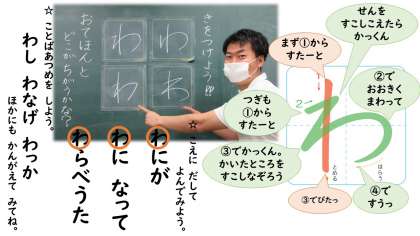 きをつけよう
わ わ
わ わ
おてほんと
どこがちがうかな?
せんを
すこしこえたら
かっくん
まず①から
すたーと
②で
おおきく
まわって
つぎも
①から
すたーと
③でかっくん。
かいたところを
すこしなぞろう
③でぴたっ
④で
すうっ
2
わ
とめる
はらう
☆ こえに だして
よんでみよう。
わにが
わに なって
わらべうた
☆ ことばあつめを しよう。
わし わなげ わっか
ほかにも かんがえて みてね。